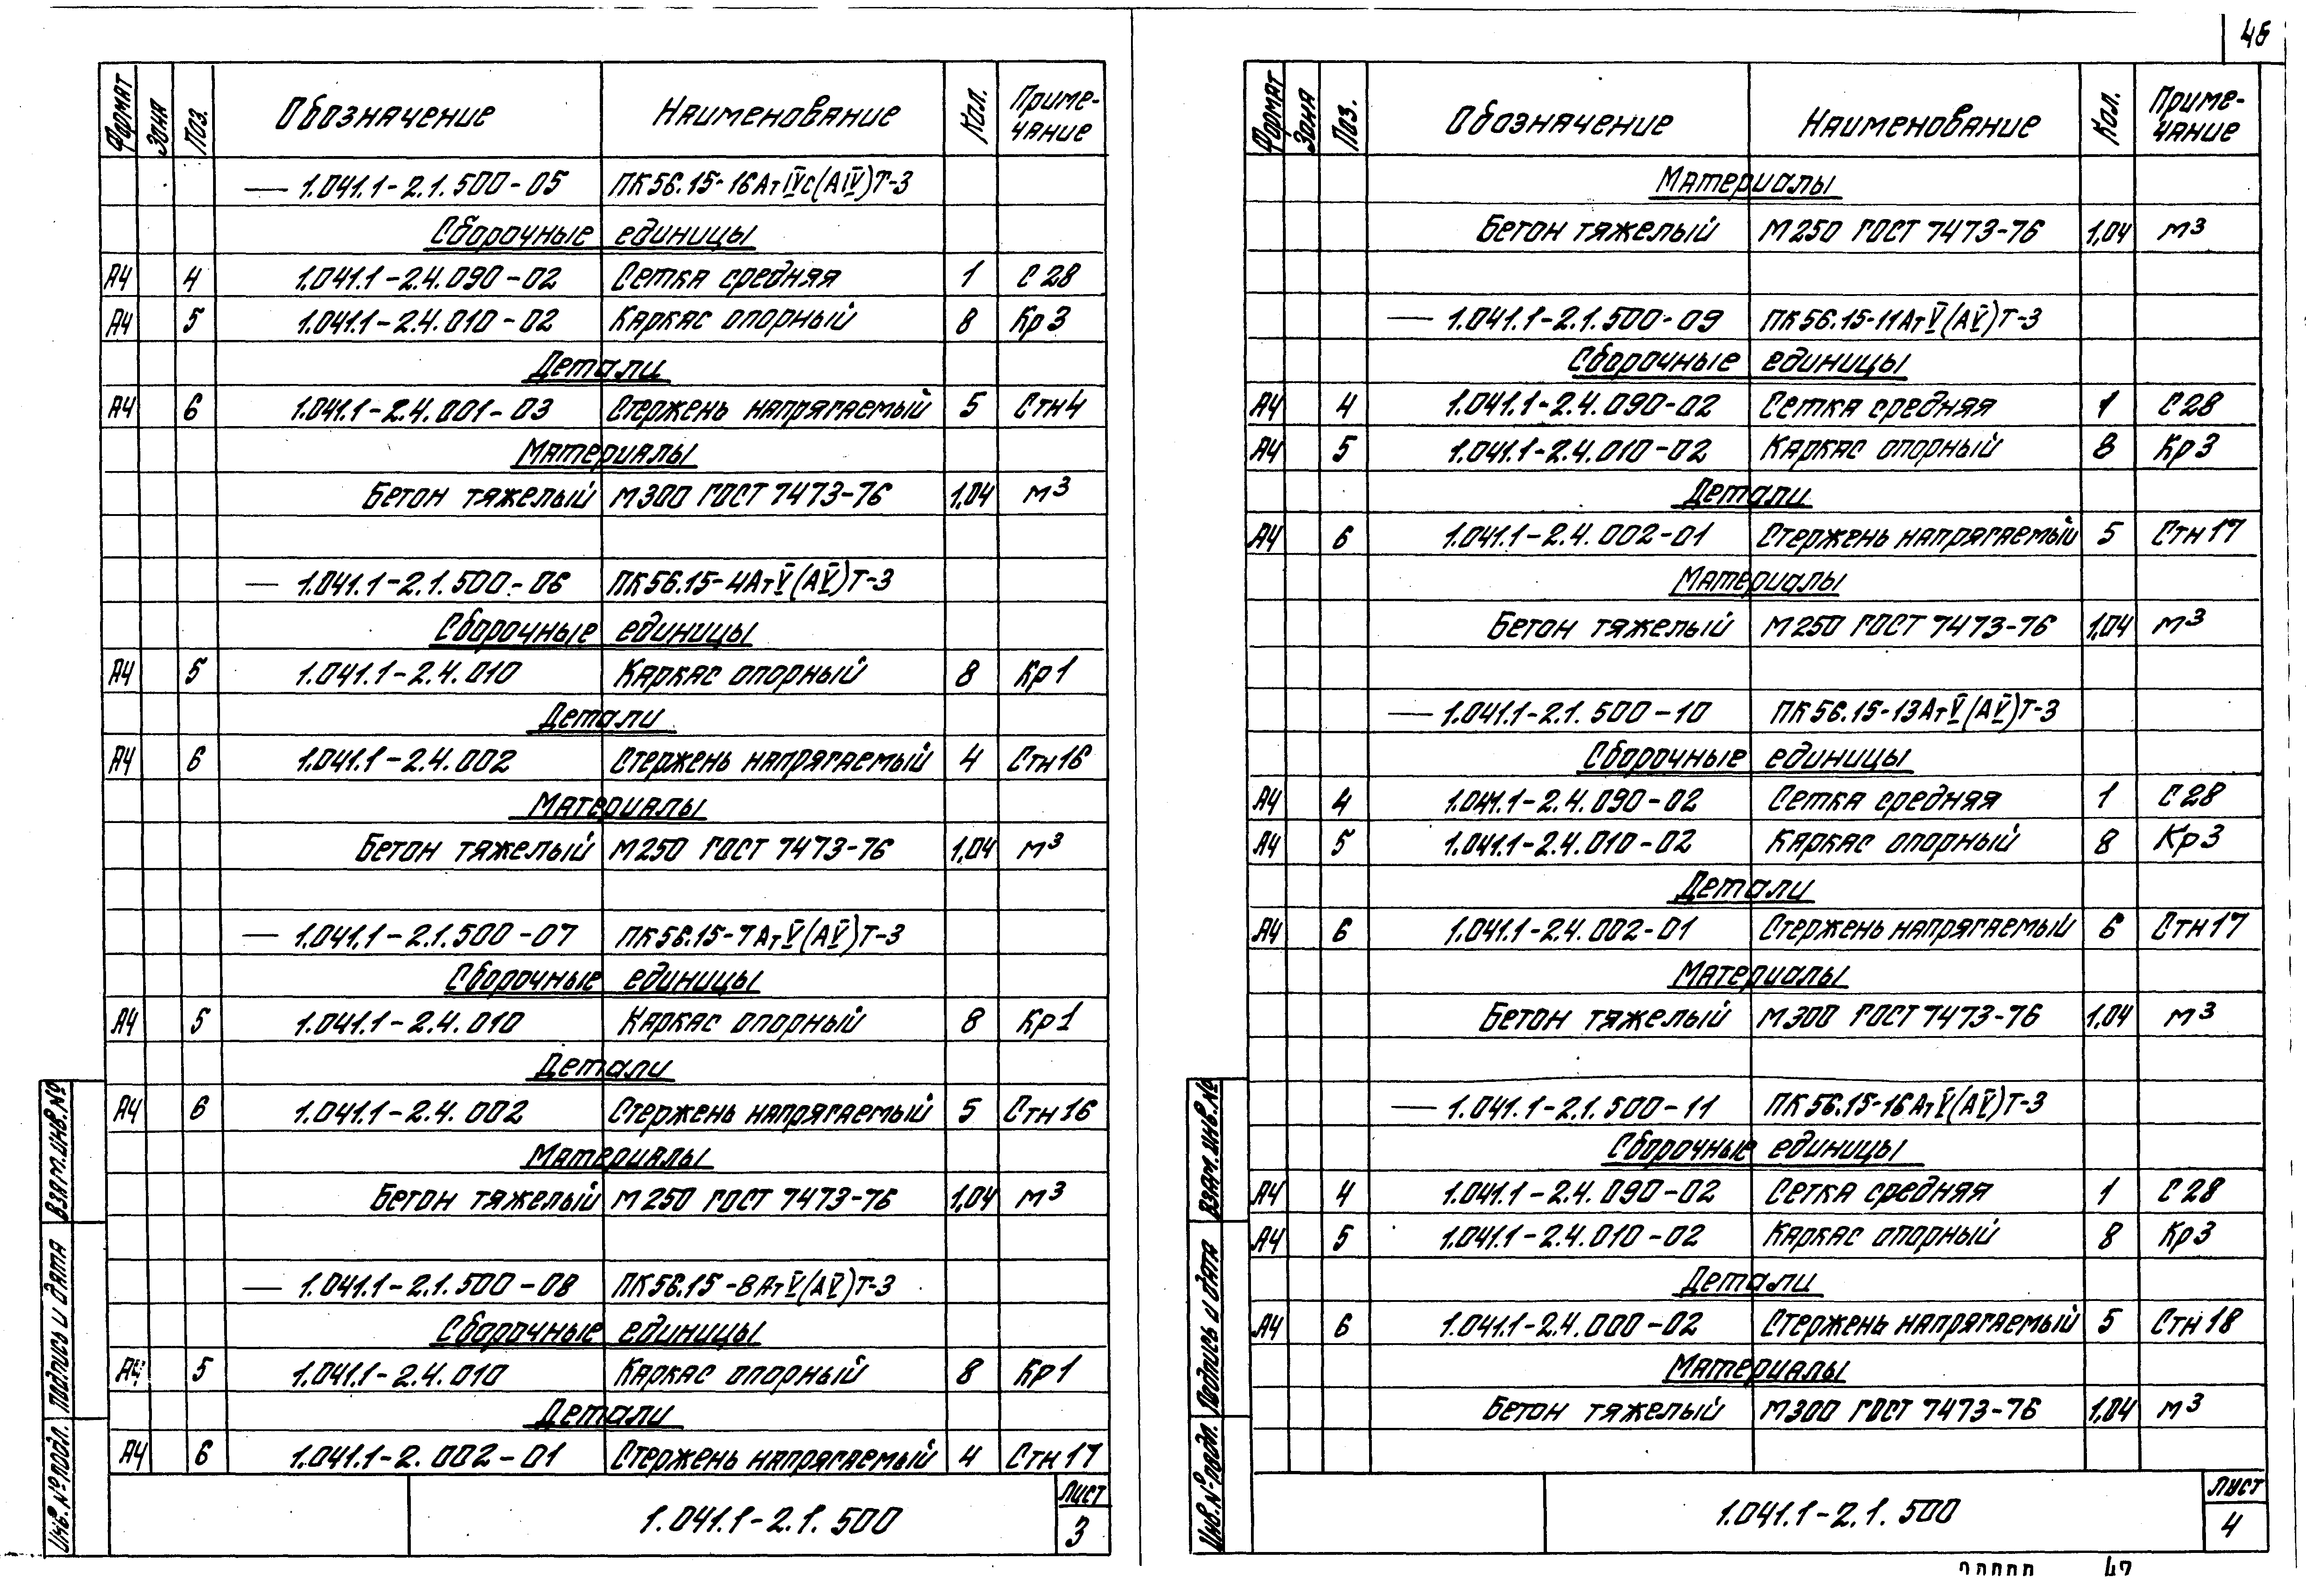 46
Формат Зона Поз. Обозначение Наименование Кол. Приме-
чание
— 1.041.1-2.1.500-05 ПК56.15-16АтIVс(АIV)Т-3
Сборочные единицы
А4 4 1.041.1-2.4.090-02 Сетка средняя 1 С28
А4 5 1.041.1-2.4.010-02 Каркас опорный 8 Кр3
Детали
А4 6 1.041.1-2.4.001-03 Стержень напрягаемый 5 Стн4
Материалы
Бетон тяжелый М300 ГОСТ 7473-76 1,04 м³
— 1.041.1-2.1.500-06 ПК56.15-4АтV(АV)Т-3
Сборочные единицы
А4 5 1.041.1-2.4.010 Каркас опорный 8 Кр1
Детали
А4 6 1.041.1-2.4.002 Стержень напрягаемый 4 Стн16
Материалы
Бетон тяжелый М250 ГОСТ 7473-76 1,04 м³
— 1.041.1-2.1.500-07 ПК56.15-7АтV(АV)Т-3
Сборочные единицы
А4 5 1.041.1-2.4.010 Каркас опорный 8 Кр1
Детали
А4 6 1.041.1-2.4.002 Стержень напрягаемый 5 Стн16
Материалы
Бетон тяжелый М250 ГОСТ 7473-76 1,04 м³
— 1.041.1-2.1.500-08 ПК56.15-8АтV(АV)Т-3
Сборочные единицы
А4 5 1.041.1-2.4.010 Каркас опорный 8 Кр1
Детали
А4 6 1.041.1-2.002-01 Стержень напрягаемый 4 Стн17
1.041.1-2.1.500
Лист
3
Инв.№ подл. Подпись и дата Взам.инв.№
Формат Зона Поз. Обозначение Наименование Кол. Приме-
чание
Материалы
Бетон тяжелый М250 ГОСТ 7473-76 1,04 м³
— 1.041.1-2.1.500-09 ПК56.15-11АтV(АV)Т-3
Сборочные единицы
А4 4 1.041.1-2.4.090-02 Сетка средняя 1 С28
А4 5 1.041.1-2.4.010-02 Каркас опорный 8 Кр3
Детали
А4 6 1.041.1-2.4.002-01 Стержень напрягаемый 5 Стн17
Материалы
Бетон тяжелый М250 ГОСТ 7473-76 1,04 м³
— 1.041.1-2.1.500-10 ПК56.15-13АтV(АV)Т-3
Сборочные единицы
А4 4 1.041.1-2.4.090-02 Сетка средняя 1 С28
А4 5 1.041.1-2.4.010-02 Каркас опорный 8 Кр3
Детали
А4 6 1.041.1-2.4.002-01 Стержень напрягаемый 6 Стн17
Материалы
Бетон тяжелый М300 ГОСТ 7473-76 1,04 м³
— 1.041.1-2.1.500-11 ПК56.15-16АтV(АV)Т-3
Сборочные единицы
А4 4 1.041.1-2.4.090-02 Сетка средняя 1 С28
А4 5 1.041.1-2.4.010-02 Каркас опорный 8 Кр3
Детали
А4 6 1.041.1-2.4.000-02 Стержень напрягаемый 5 Стн18
Материалы
Бетон тяжелый М300 ГОСТ 7473-76 1,04 м³
1.041.1-2.1.500
Лист
4
Инв.№ подл. Подпись и дата Взам.инв.№